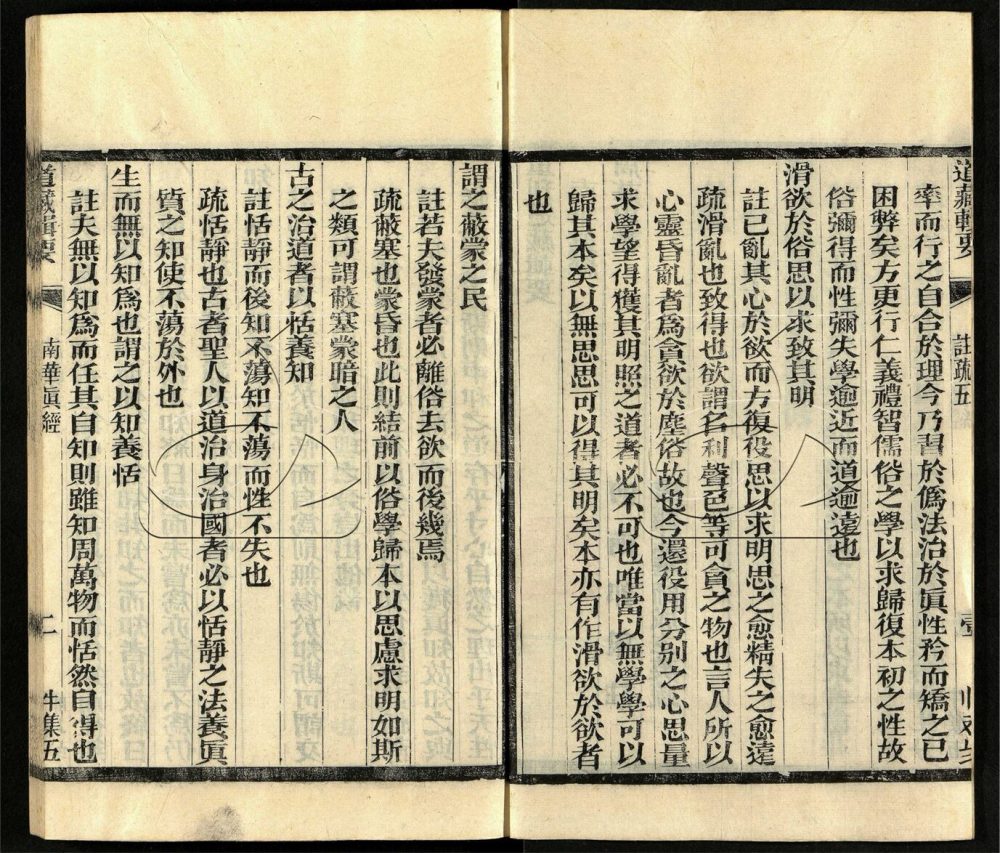 道藏輯要
註疏五
率而行之自合於理今乃習於僞法治於眞性矜而矯之已
困弊矣方更行仁義禮智儒俗之學以求歸復本初之性故
俗彌得而性彌失學逾近而道逾遠也
滑欲於俗思以求致其明
註已亂其心於欲而方復役思以求明思之愈精失之愈遠
疏滑亂也致得也欲謂名利聲色等可貪之物也言人所以
心靈昏亂者爲貪欲於塵俗故也今還役用分別之心思量
求學望得獲其明照之道者必不可也唯當以無學學可以
歸其本矣以無思思可以得其明矣本亦有作滑欲於欲者
也
謂之蔽蒙之民
註若夫發蒙者必離俗去欲而後幾焉
疏蔽塞也蒙昏也此則結前以俗學歸本以思慮求明如斯
之類可謂蔽塞蒙暗之人
古之治道者以恬養知
註恬靜而後知不蕩知不蕩而性不失也
疏恬靜也古者聖人以道治身治國者必以恬靜之法養眞
質之知使不蕩於外也
生而無以知爲也謂之以知養恬
註夫無以知爲而任其自知則雖知周萬物而恬然自得也
道藏輯要
南華眞經
二
牛集五